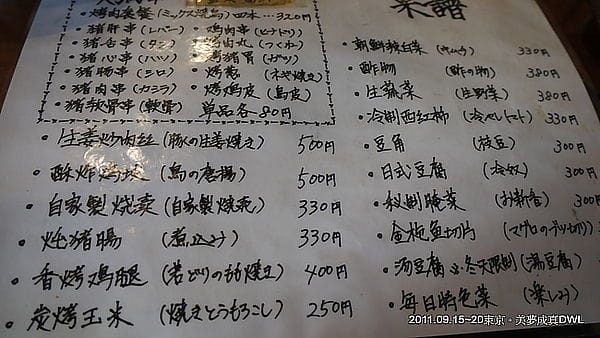 菜譜
・烤肉套餐(ミックス焼鳥)四本…320円
・猪肝串(レバー)
・鸡肉串(ヒナドリ)
・猪舌串(タン)
肉丸(つくね)
・猪心串(ハツ)
・烤猪胃(ガツ)
・猪腸串(シロ)
・烤葱(ネギ焼き)
・猪肉串(カシラ)
・烤鸡皮(鳥皮)
・猪软骨串(軟骨)
単品各80円
・生姜炒肉丝(豚の生姜焼き) 500円
・酥炸鸡块(鳥の唐揚) 500円
・自家製焼売(自家製焼売) 330円
・炖猪腸(煮込み) 330円
・香烤鸡腿(若どりのもも焼き) 400円
・炭烤玉米(焼きとうもろこし) 250円
・朝鮮辣白菜(キムチ) 330円
・酢物(酢の物) 380円
・生蔬菜(生野菜) 380円
・冷制西红柿(冷やしトマト) 330円
・豆角(枝豆) 300円
・日式豆腐(冷奴) 300円
・秘制腌菜(お新香) 300
・金枪鱼切片(マグロのブツ切り)
・汤豆腐 冬天限制(湯豆腐)
・毎日特色菜(楽しみ)
2011.09.15~20東京・美夢成真DWL